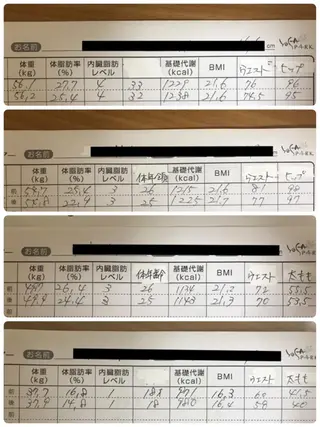 お名前 cm
体重(kg) 体脂肪率(%) 内臓脂肪レベル 基礎代謝(kcal) BMI ウエスト ヒップ
56,1 27,7 4 33 1229 21,6 76 96
56,2 25,4 4 32 1238 21,6 74,5 95
お名前
体重(kg) 体脂肪率(%) 内臓脂肪レベル 体年齢 基礎代謝(kcal) BMI ウエスト ヒップ
前 25,4 3 26 1215 21,6 81 98
後 22,9 3 25 1225 21,7 77 97
お名前
体重(kg) 体脂肪率(%) 内臓脂肪レベル 体年齢 基礎代謝(kcal) BMI ウエスト 太もも
前 26,4 3 26 1134 21,2 72 55,5
後 49,4 24,4 3 25 1143 21,3 70 53,5
前
お名前
体重(kg) 体脂肪率(%) 内臓脂肪レベル 基礎代謝(kcal) BMI ウエスト 太もも
前 37,7 16,8 1 18 16,3 60 41,5
後 37,9 14,8 1 18 980 16,4 58 40
前